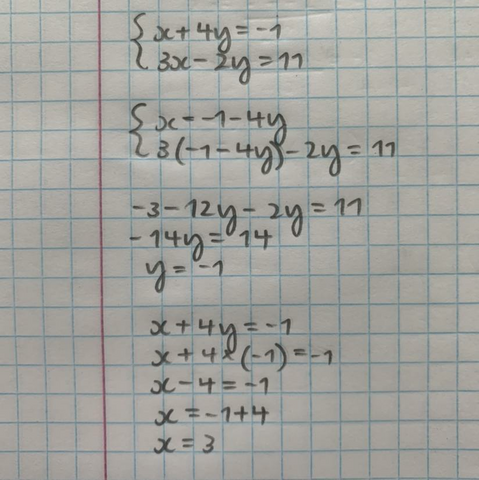 x + 4y = -1
3x - 2y = 11
x = -1 - 4y
3(-1 - 4y) - 2y = 11
-3 - 12y - 2y = 11
-14y = 14
y = -1
x + 4y = -1
x + 4 * (-1) = -1
x - 4 = -1
x = -1 + 4
x = 3